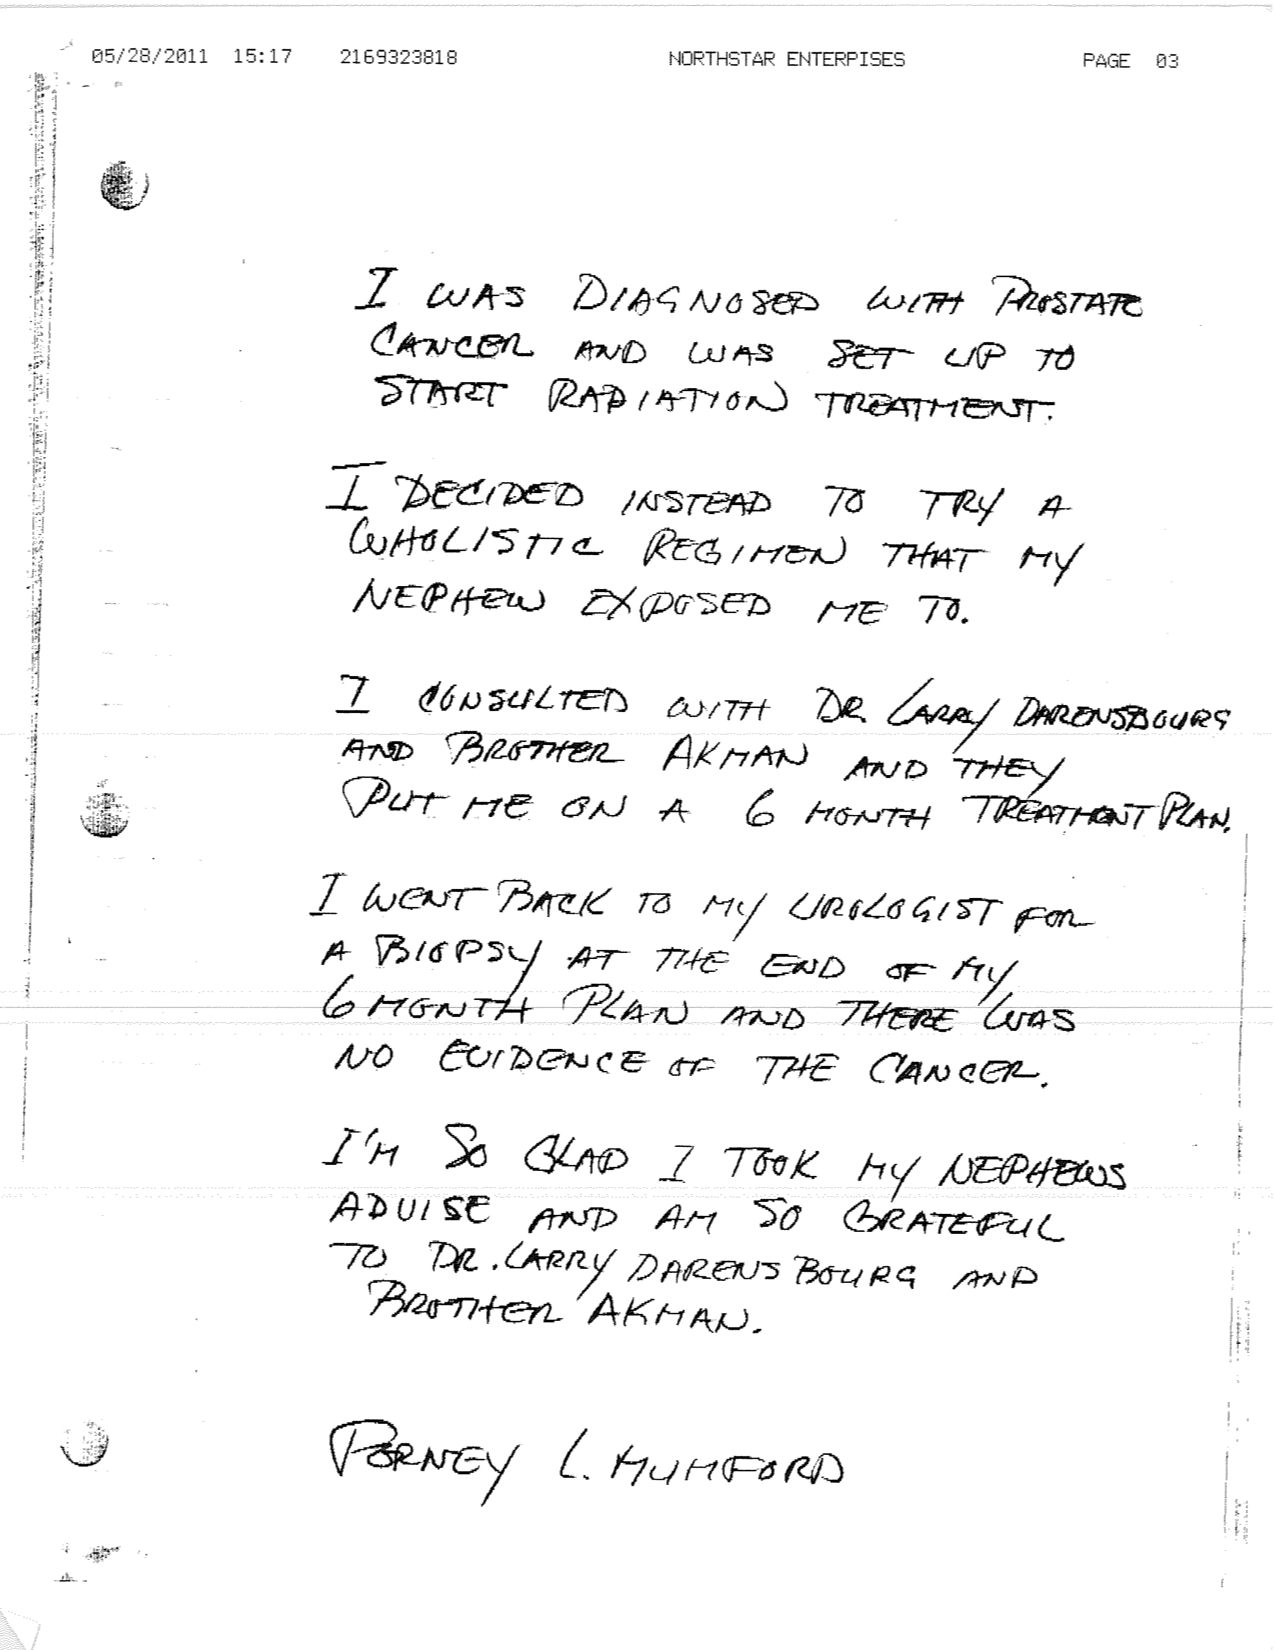 05/28/2011 15:17 2169323818 NORTHSTAR ENTERPISES PAGE 03
I WAS DIAGNOSED WITH PROSTATE
CANCER AND WAS SET UP TO
START RADIATION TREATMENT.
I DECIDED INSTEAD TO TRY A
WHOLISTIC REGIMEN THAT MY
NEPHEW EXPOSED ME TO.
I CONSULTED WITH DR. LARRY DARENSBOURG
AND BROTHER AKMAN AND THEY
PUT ME ON A 6 MONTH TREATMENT PLAN.
I WENT BACK TO MY UROLOGIST FOR
A BIOPSY AT THE END OF MY
6 MONTH PLAN AND THERE WAS
NO EVIDENCE OF THE CANCER.
I'M SO GLAD I TOOK MY NEPHEWS
ADVISE AND AM SO GRATEFUL
TO DR. LARRY DARENSBOURG AND
BROTHER AKMAN.
PORNEY L. MUMFORD